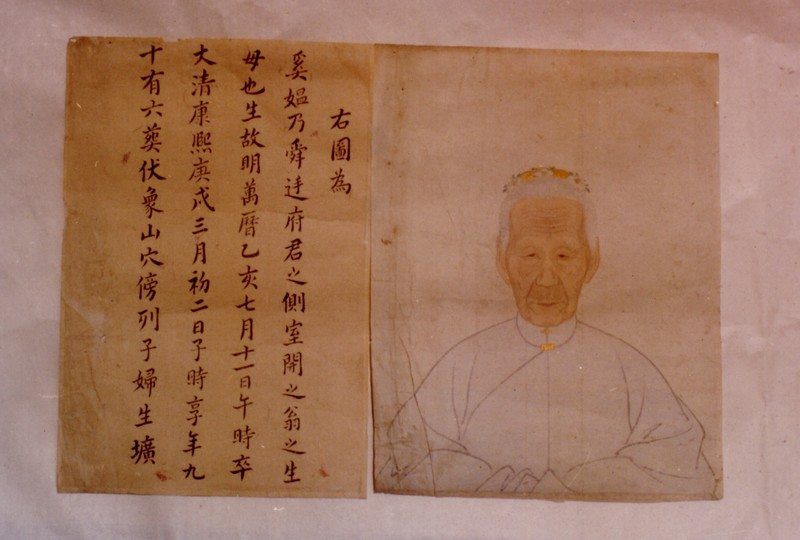 右圖為
奚媼乃舜廷府君之側室開之翁之生
母也生故明萬曆乙亥七月十一日午時卒
大清康熙庚戌三月初二日子時享年九
十有六葬伏象山穴傍列子婦生壙